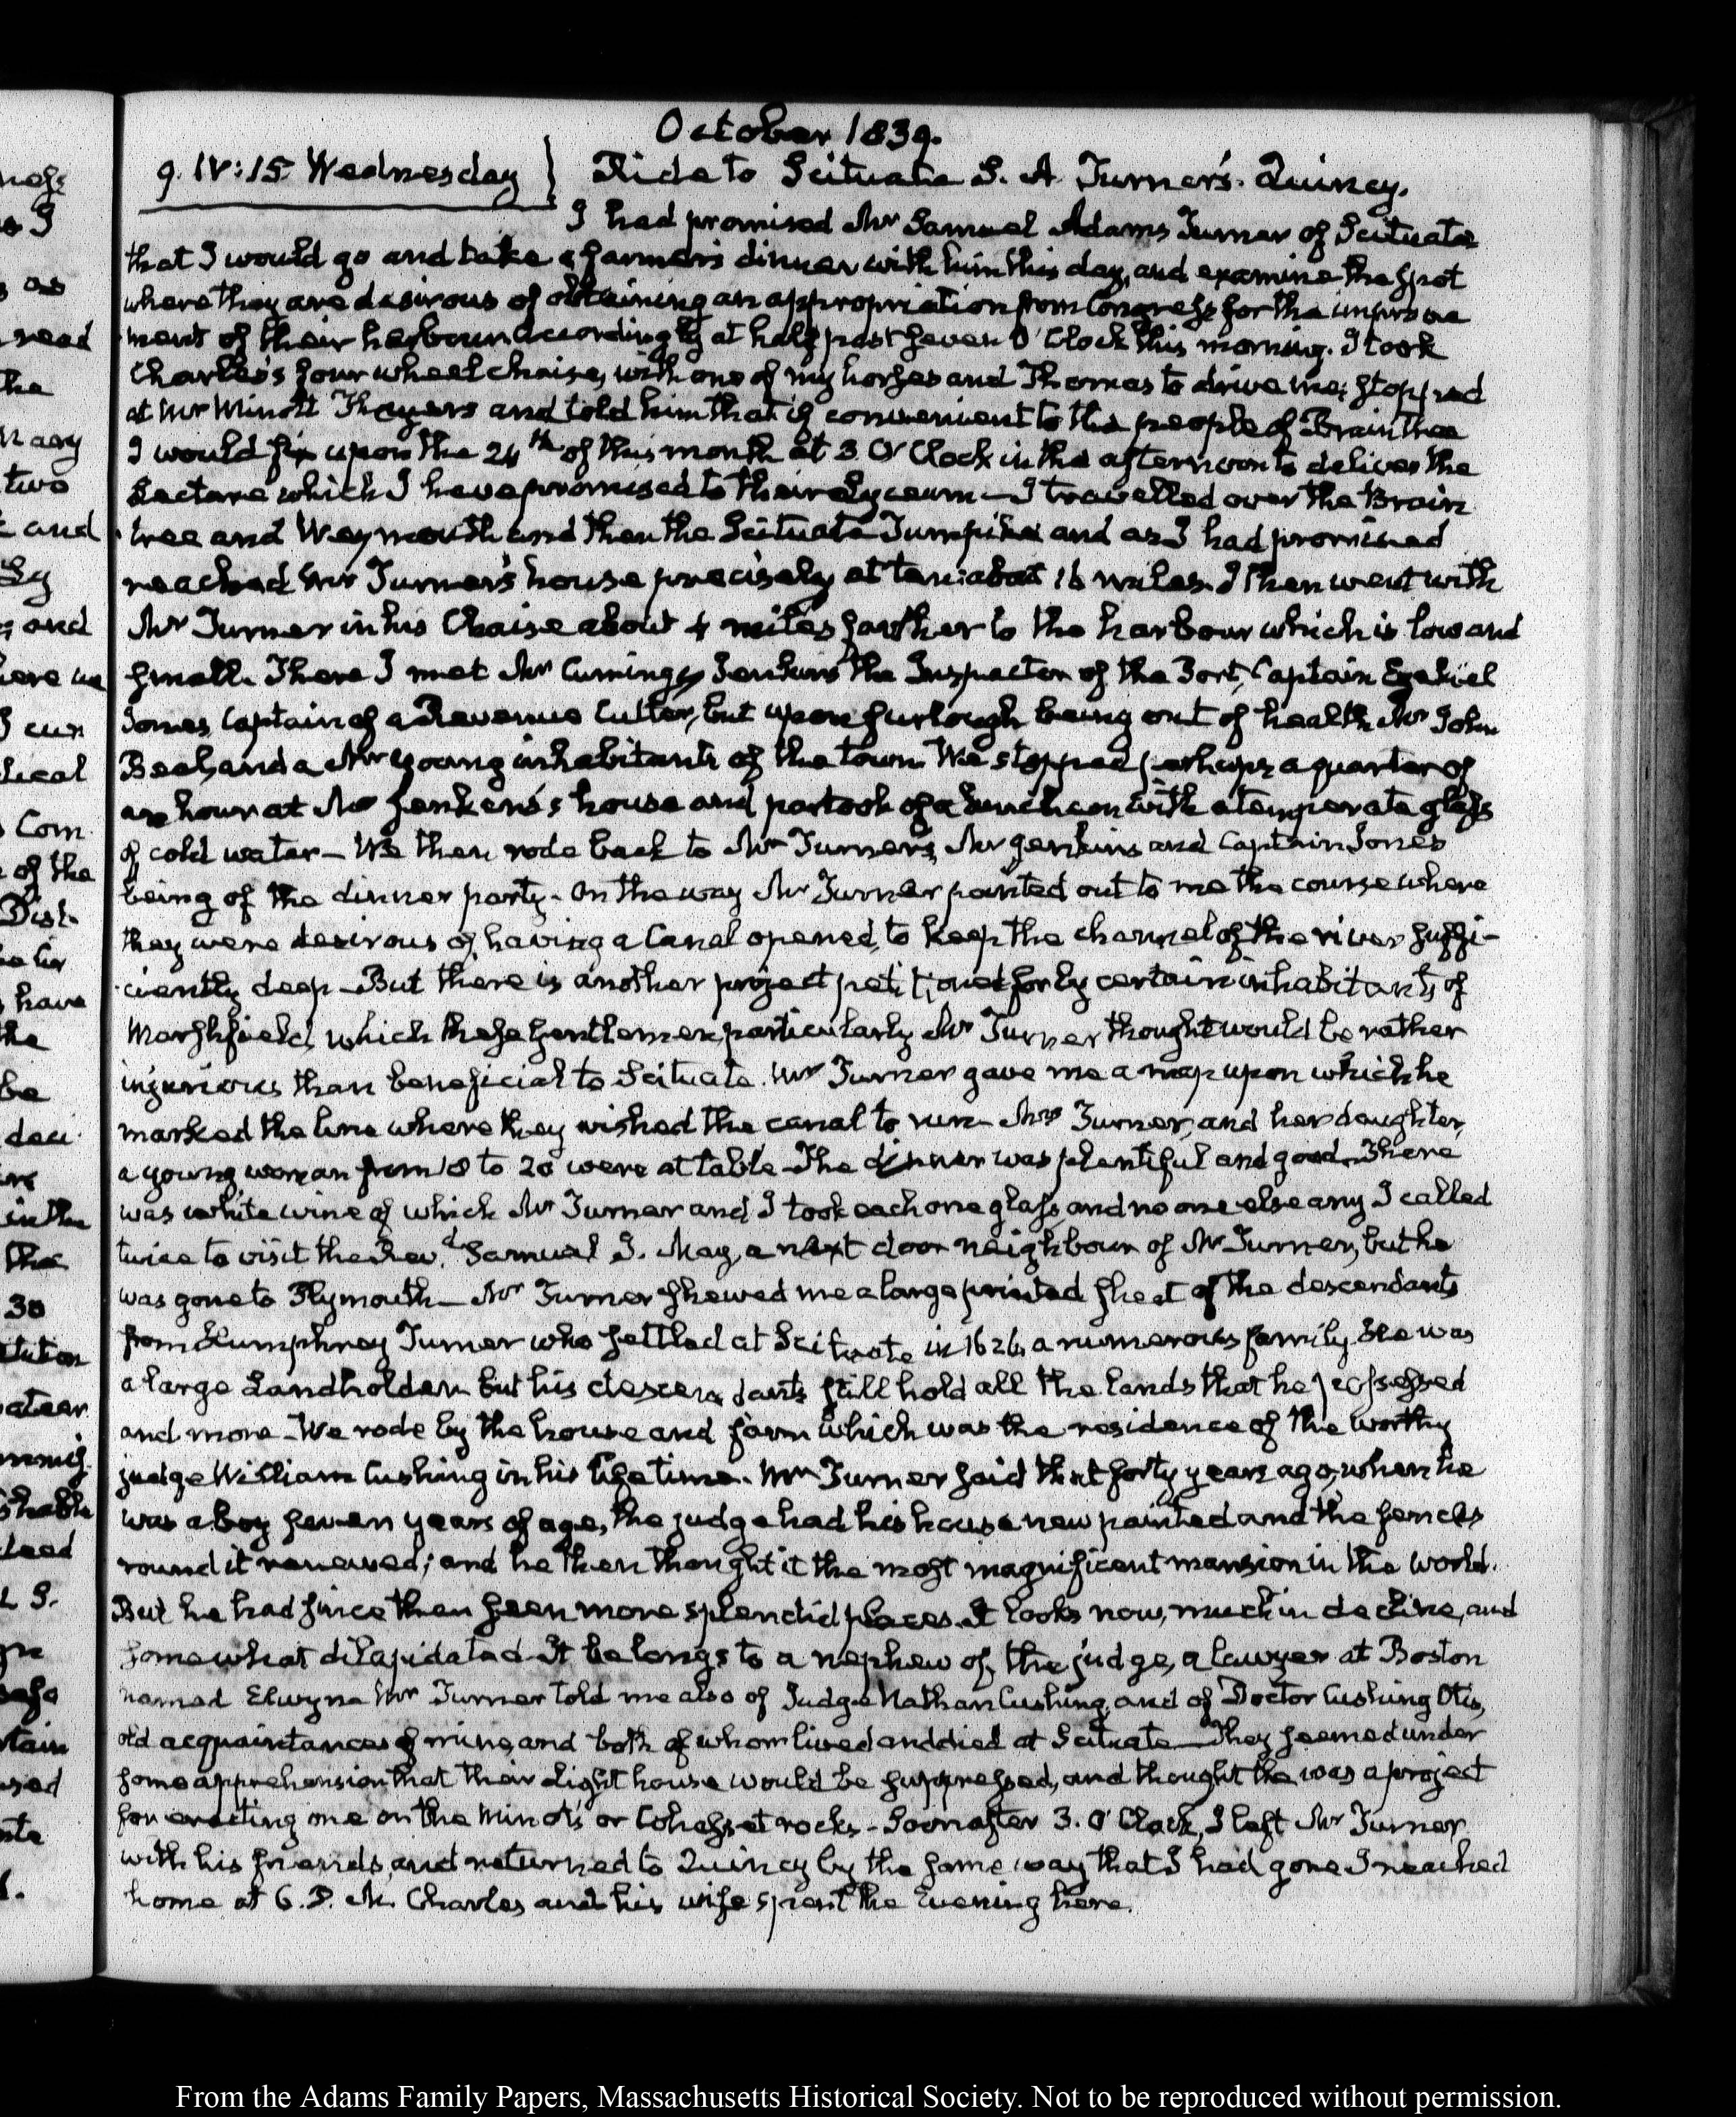 October 1839.
9. IV:15. Wednesday } Ride to Scituate S. A. Turner's. Quincy.
I had promised Mr Samuel Adams Turner of Scituate
that I would go and take a farmer's dinner with him this day, and examine the spot
where they are desirous of obtaining an appropriation from Congress for the improve
ment of their harbour Accordingly at half past seven O' Clock this morning. I took
Charles's four wheel chaise, with one of my horses and Thomas to drive me; stopped
at Mr Minott Thayers and told him that if convenient to the people of Braintree
I would fix upon the 24th of this month at 3. O' Clock in the afternoon to deliver the
Lecture which I have promised to their Lyceum—I travelled over the Brain
tree and Weymouth and then the Scituate Turnpike and as I had promised
reached Mr Turner's house precisely at ten: about 16 miles. I then went with
Mr Turner in his Chaise about 4 miles farther to the harbour which is low and
small. There I met Mr Cummings Jenkins the Inspector of the Port, Captain Ezekiel
Jones, Captain of a Revenue Cutter, but upon furlough being out of health, Mr John
Beal, and a Mr Young inhabitants of the town. We stopped perhaps a quarter of
an hour at Mr Jenkens's house and partook of a luncheon with a temperate glass
of cold water—We then rode back to Mr Turner's, Mr Jenkins and Captain Jones
being of the dinner party. On the way Mr Turner pointed out to me the course where
they were desirous of having a Canal opened, to keep the channel of the river suffi-
ciently deep—But there is another project petitioned for by certain inhabitants of
Marshfield, which these Gentlemen, particularly Mr Turner thought would be rather
injurious than beneficial to Scituate. Mr Turner gave me a map upon which he
marked the line where they wished the canal to run—Mrs Turner, and her daughter,
a young woman from 18 to 20 were at table—The dinner was plentiful and good. There
was white wine of which Mr Turner and I took each one glass, and no one else any I called
twice to visit the Revd. Samuel J. May, a next door neighbour of Mr Turner, but he
was gone to Plymouth—Mr Turner shewed me a large printed sheet of the descendants
from Humphrey Turner who settled at Scituate in 1626, a numerous family. He was
a large Landholder but his descendants still hold all the lands that he possessed
and more—We rode by the house and farm which was the residence of the worthy
judge William Cushing in his life time. Mr Turner said that forty years ago, when he
was a boy seven years of age, the judge had his house new painted and the fences
round it renewed; and he then thought it the most magnificent mansion in the world.
But he had since then seen more splendid places. It looks now, much in decline, and
somewhat dilapidated—It belongs to a nephew of the judge, a lawyer at Boston
named Elwyn Mr Turner told me also of Judge Nathan Cushing, and of Doctor Cushing Otis,
old acquaintances of mine, and both of whom lived and died at Scituate—They seemed under
some apprehension that their Light house would be suppressed, and thought the was a project
for erecting one on the Minot's or Cohasset rocks—Soon after 3. O' Clock, I left Mr Turner
with his friends, and returned to Quincy by the same way that I had gone I reached
home at 6. P. M. Charles and his wife spent the Evening here.
From the Adams Family Papers, Massachusetts Historical Society. Not to be reproduced without permission.